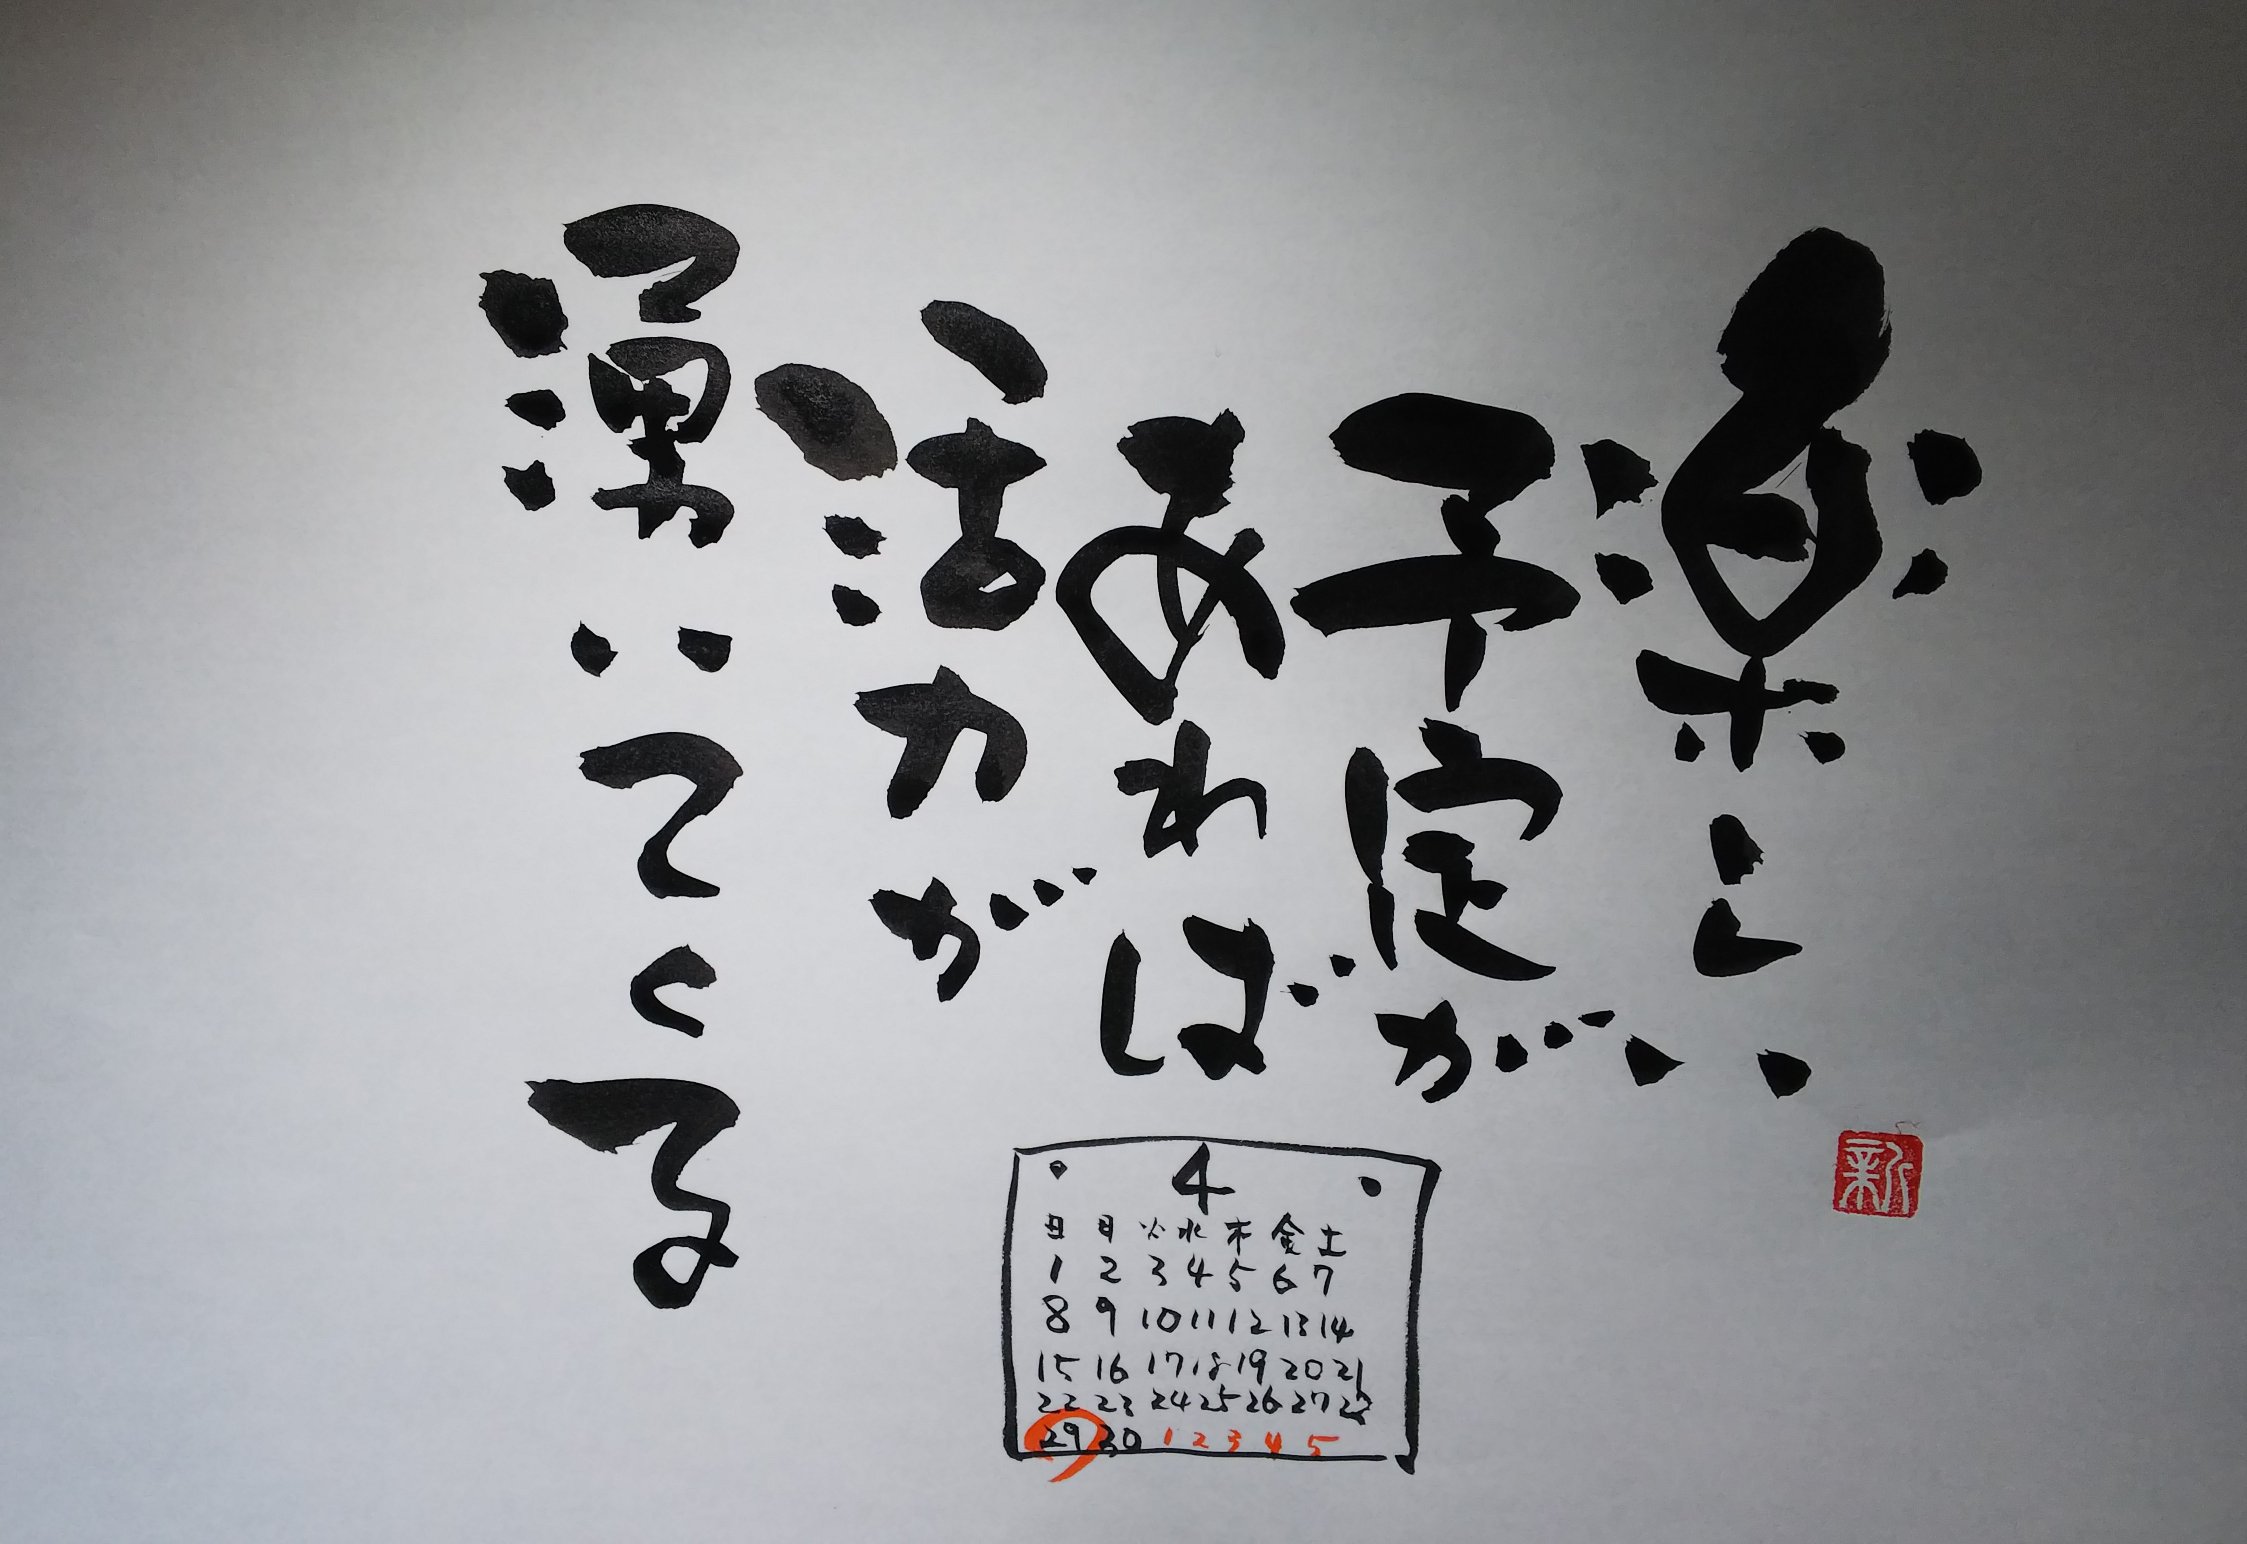 楽しい
予定が
あれば
活力が
湧いてくる
新
4
日 月 火 水 木 金 土
1 2 3 4 5 6 7
8 9 10 11 12 13 14
15 16 17 18 19 20 21
22 23 24 25 26 27 28
29 30 1 2 3 4 5